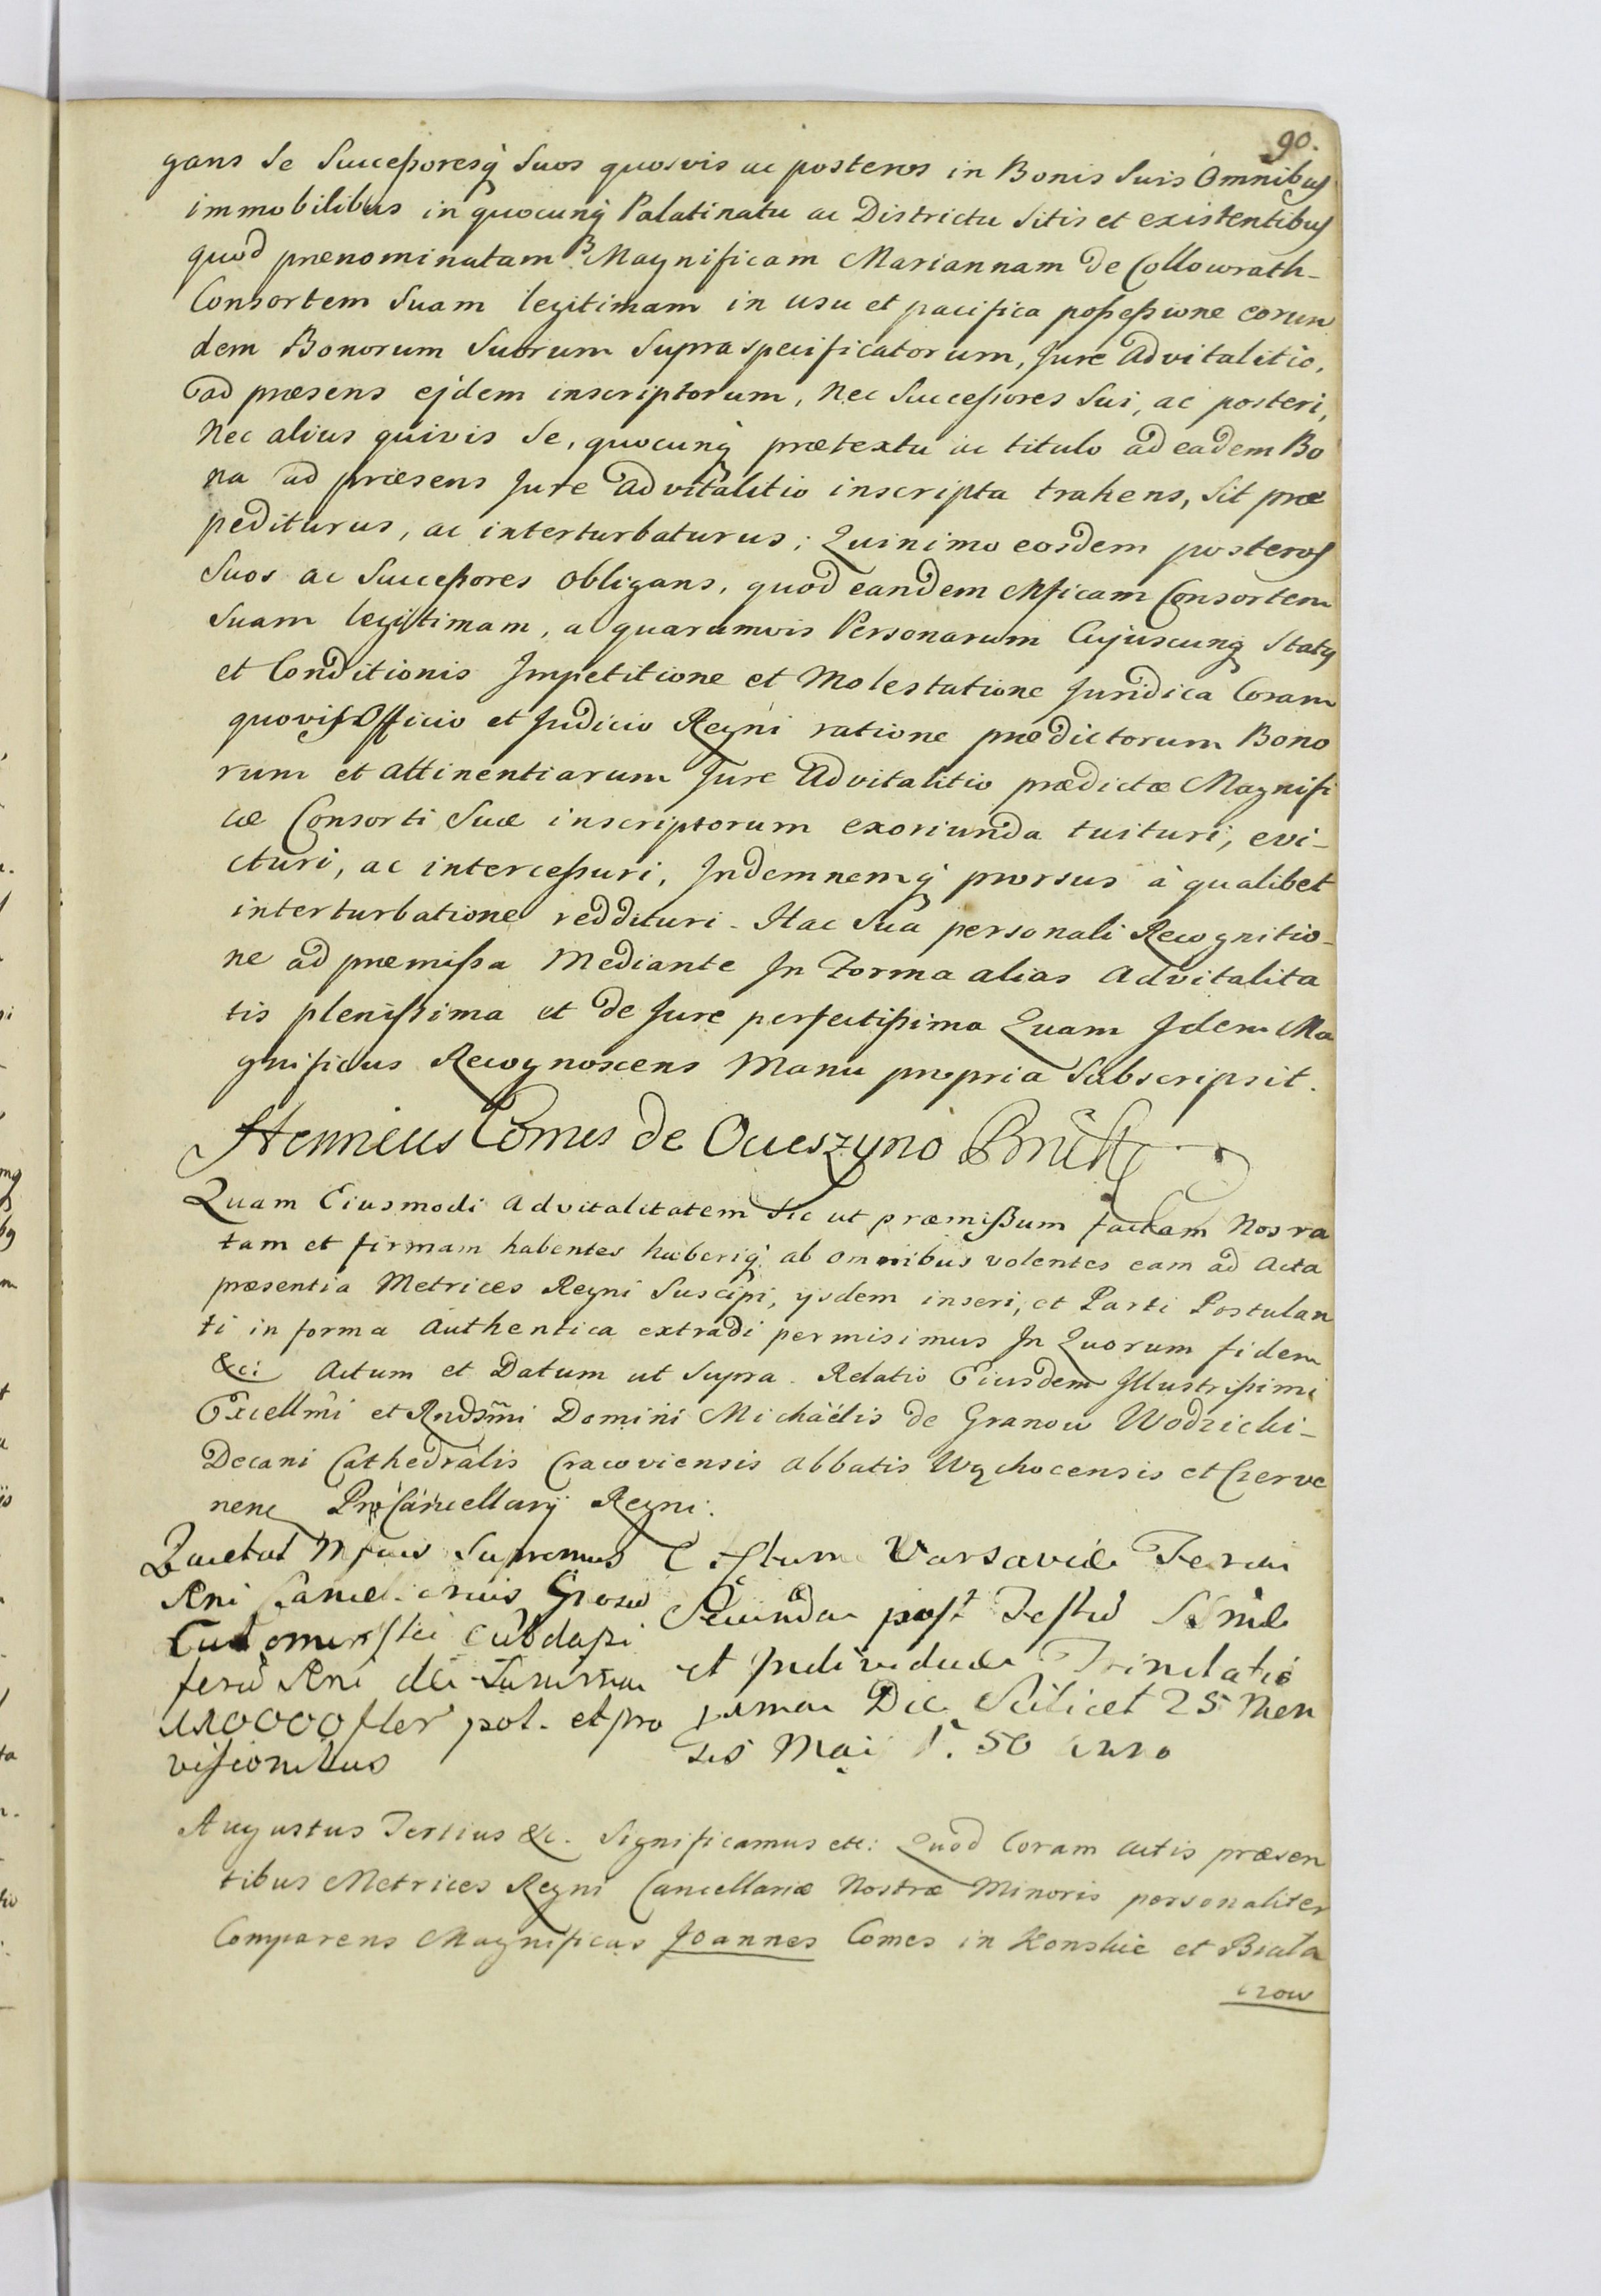 90.
gans Se Successoresq́ Suos quosvis ac posteros in Bonis Suis Omnibus
immobilibus in quocunq́ Palatinatu ac Districtu Sitis et existentibus
quod prænominatam Magnificam Mariannam de Collowrath-
Consortem Suam legitimam in usu et pacifica possessione eorun
dem Bonorum Suorum Supraspecificatorum, Jure Advitalitio,
ad præsens ejdem inscriptorum, Nec Successores Sui, ac posteri,
Nec alius quivis Se, quocunq́ prætextu ac titulo ad eadem Bo
na ad præsens Jure Advitalitio inscripta trahens, Sit præ
pediturus, ac interturbaturus; Quinimo eosdem posteros
Suos ac Successores Obligans, quod eandem Mficam Consortem
Suam legitimam, a quarumvis Personarum Cujuscunq́ Statq
et Conditionis Impetitione et Molestatione Juridica Coram
quovis Officio et Judicio Regni ratione prædictorum Bono
rum et Attinentiarum Jure Advitalitio prædictæ Magnifi
cæ Consorti Suæ inscriptorum exoriunda tuituri, evi-
cturi, ac intercessuri, Indemnemq́ prorsus à qualibet
interturbatione reddituri. Hac Sua personali Recognitio-
ne ad præmissa Mediante In Forma alias Advitalita
tis plenissima et de Jure perfectissima Quam Idem Ma
gnificus Recognoscens Manu propria Subscripsit.
Henricus Comes de Ocieszyno Brühl
Quam Eiusmodi Advitalitatem Sic ut præmissum factam Nos ra
tam et firmam habentes haberiq́ ab omnibus volentes eam ad Acta
præsentia Metrices Regni Suscipi, ijsdem inseri, et Parti Postulan
ti in forma Authentica extradi permisimus In Quorum fidem
&c: Actum et Datum ut Supra. Relatio Eiusdem Illustrissimi
Excellmi et Rndsmi Domini Michaëlis de Granow Wodzicki-
Decani Cathedralis Cracoviensis Abbatis Wąchocensis et Czerve
nenę ProCancellarij Regni:
Quietat Mfcus Supremus
Rni Cancel.
Subdapi
fero Rni de Summa
110000 fler pol. et pro
visionibus
Actum Varsaviæ Feria
Secunda post Festu SSmæ
et Individuæ Trinitatis
prima Die Scilicet 25 Men
sis Maij 1750 Anno
Augustus Tertius &c. Significamus etc: Quod Coram Actis præsen
tibus Metrices Regni Cancellariæ Nostræ Minoris personaliter
Comparens Magnificus Joannes Comes in Konskie et Biała
czow